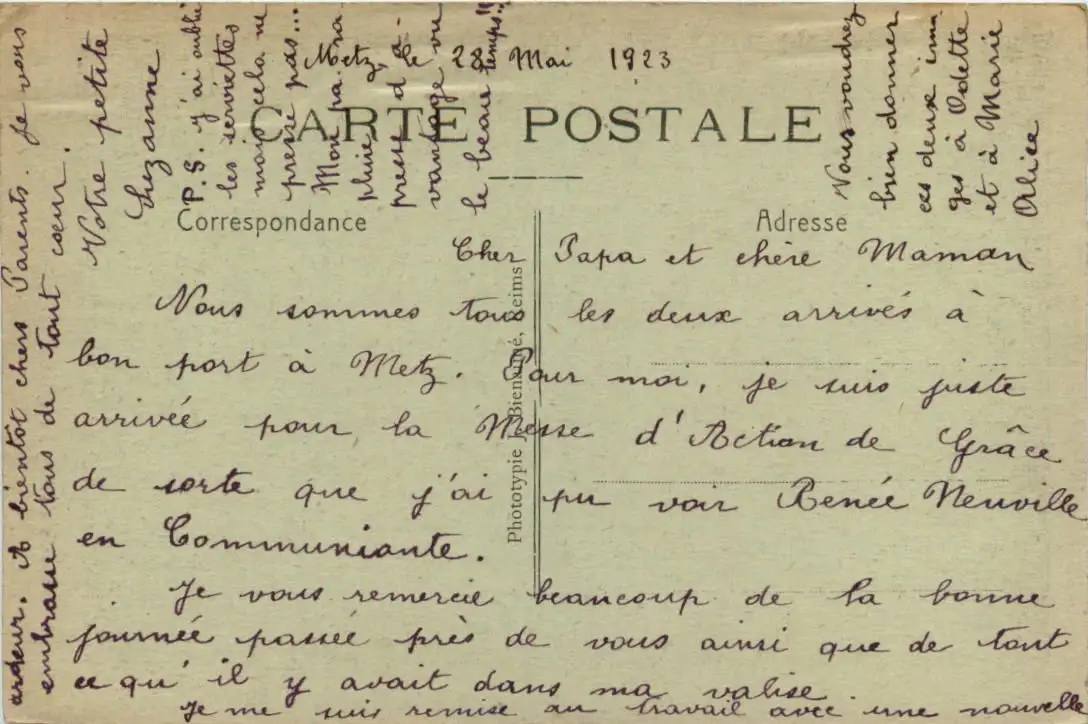 Metz, le 28 Mai 1923
CARTE POSTALE
Correspondance
Adresse
Cher Papa et chère Maman
Nous sommes tous les deux arrivés à
bon port à Metz. Pour moi, je suis juste
arrivée pour la Messe d'Action de Grâce
de sorte que j'ai pu voir Renée Neuville
en Communiante.
Je vous remercie beaucoup de la bonne
journée passée près de vous ainsi que de tout
ce qu'il y avait dans ma valise.
Je me suis remise au travail avec une nouvelle
ardeur. A bientôt chers Parents. Je vous
embrasse tous de tout coeur.
Votre petite
Suzanne
P.S. j'ai oublié
les serviettes
mais cela ne
presse pas...
Mon pa ra
pluie, d'
presse d'a
vantage vu
le beau temps!!
Vous voudrez
bien donner
ces deux ima
ges à Odette
et à Marie
Alice
Phototypie J. Bienaimé, Reims